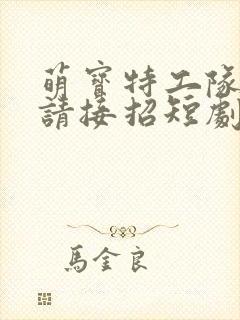 萌寶特工隊
請接招短劇
馬金良